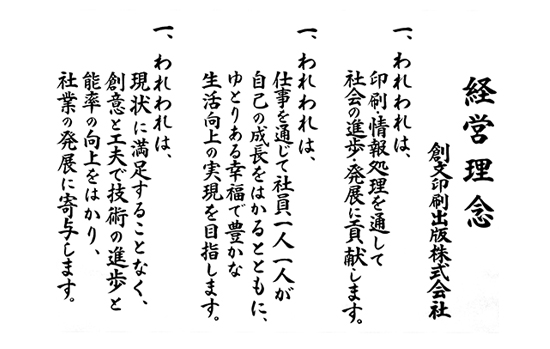 経営理念
創文印刷出版株式会社
一、われわれは、
印刷・情報処理を通して
社会の進歩・発展に貢献します。
一、われわれは、
仕事を通じて社員一人一人が
自己の成長をはかるとともに、
ゆとりある幸福で豊かな
生活向上の実現を目指します。
一、われわれは、
現状に満足することなく、
創意と工夫で技術の進歩と
能率の向上をはかり、
社業の発展に寄与します。